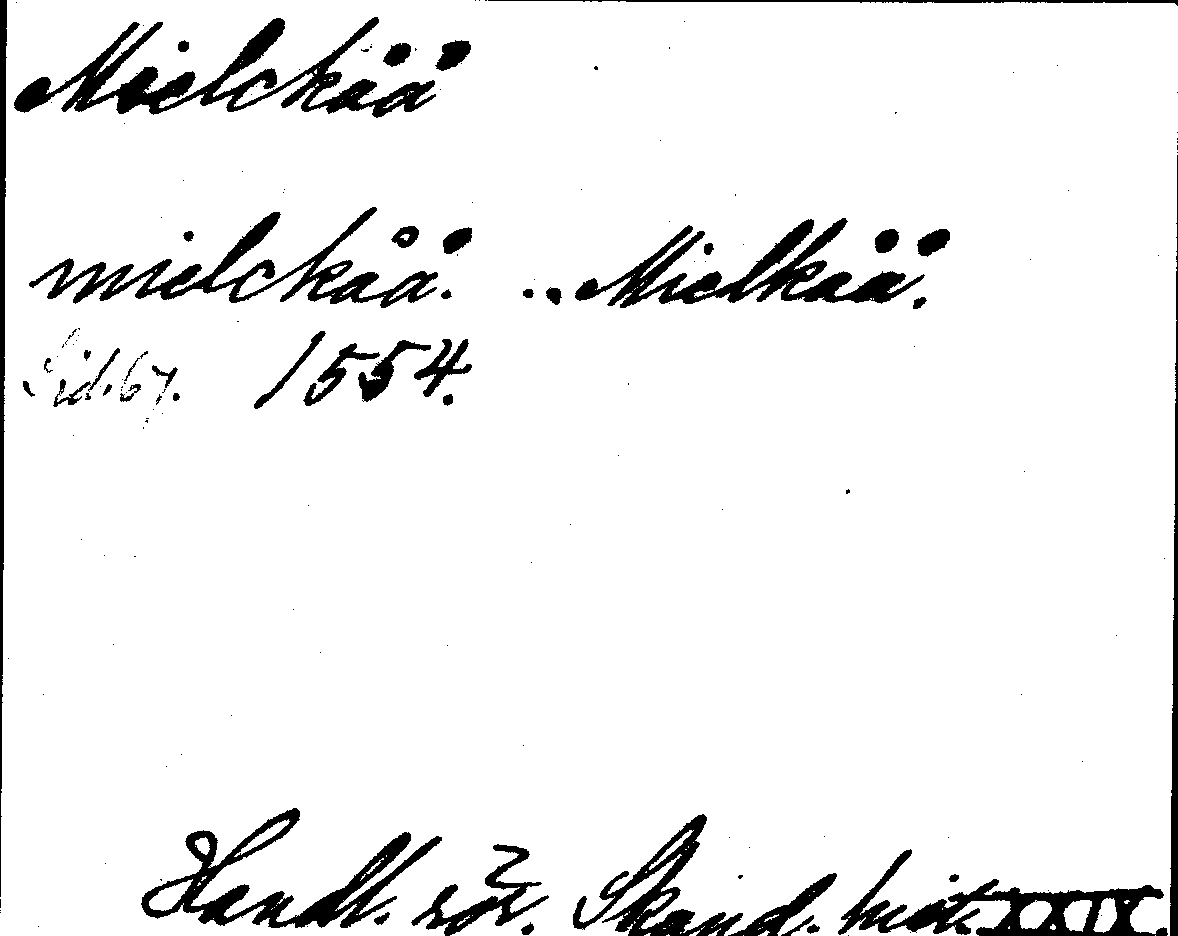 Mielckåå
mielckåå. .. Mielkåå.
Sid. 67. 1554.
Handl. rör. Skand. hist. XXIX.